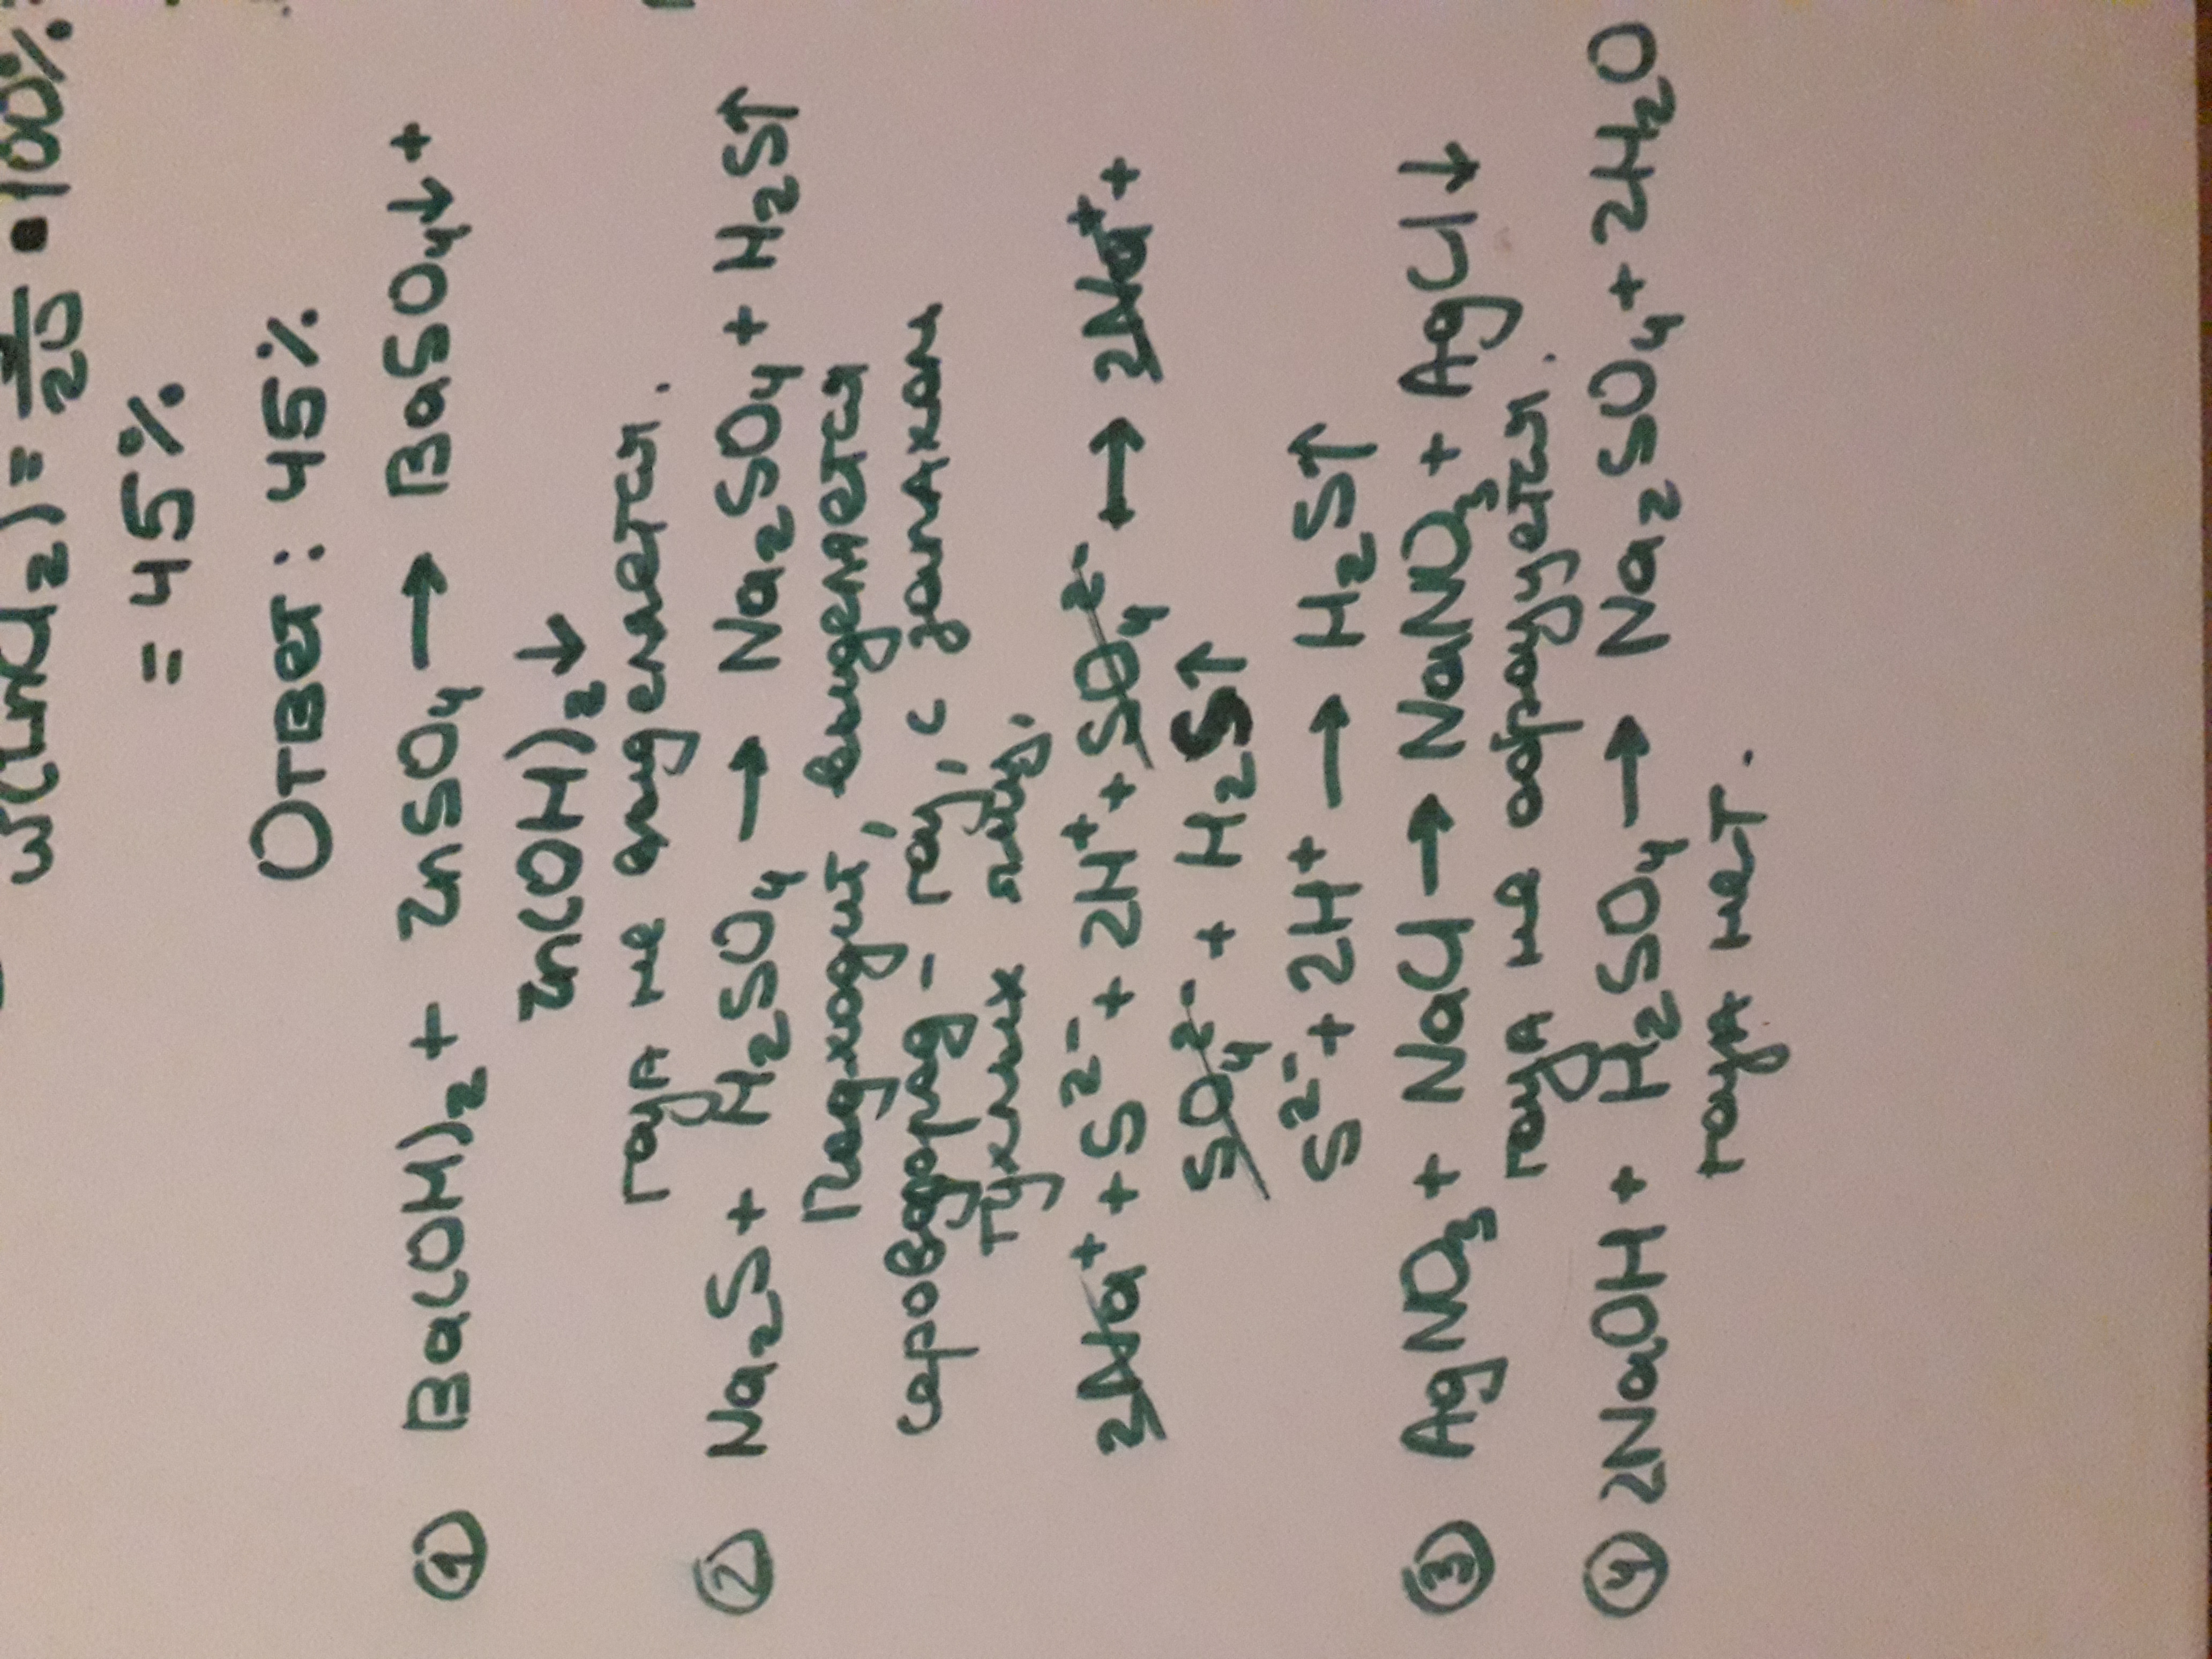 w(ZnCl₂) = 9/20 · 100% =
= 45%
Ответ: 45%
① Ba(OH)₂ + ZnSO₄ → BaSO₄↓ +
Zn(OH)₂↓
газа не выделится.
② Na₂S + H₂SO₄ → Na₂SO₄ + H₂S↑
Подходит, выделяется
сероводород - газ, с запахом
тухлых яиц.
2Na⁺ + S²⁻ + 2H⁺ + SO₄²⁻ → 2Na⁺ +
SO₄²⁻ + H₂S↑
S²⁻ + 2H⁺ → H₂S↑
③ AgNO₃ + NaCl → NaNO₃ + AgCl↓
газа не образуется.
④ 2NaOH + H₂SO₄ → Na₂SO₄ + 2H₂O
газа нет.